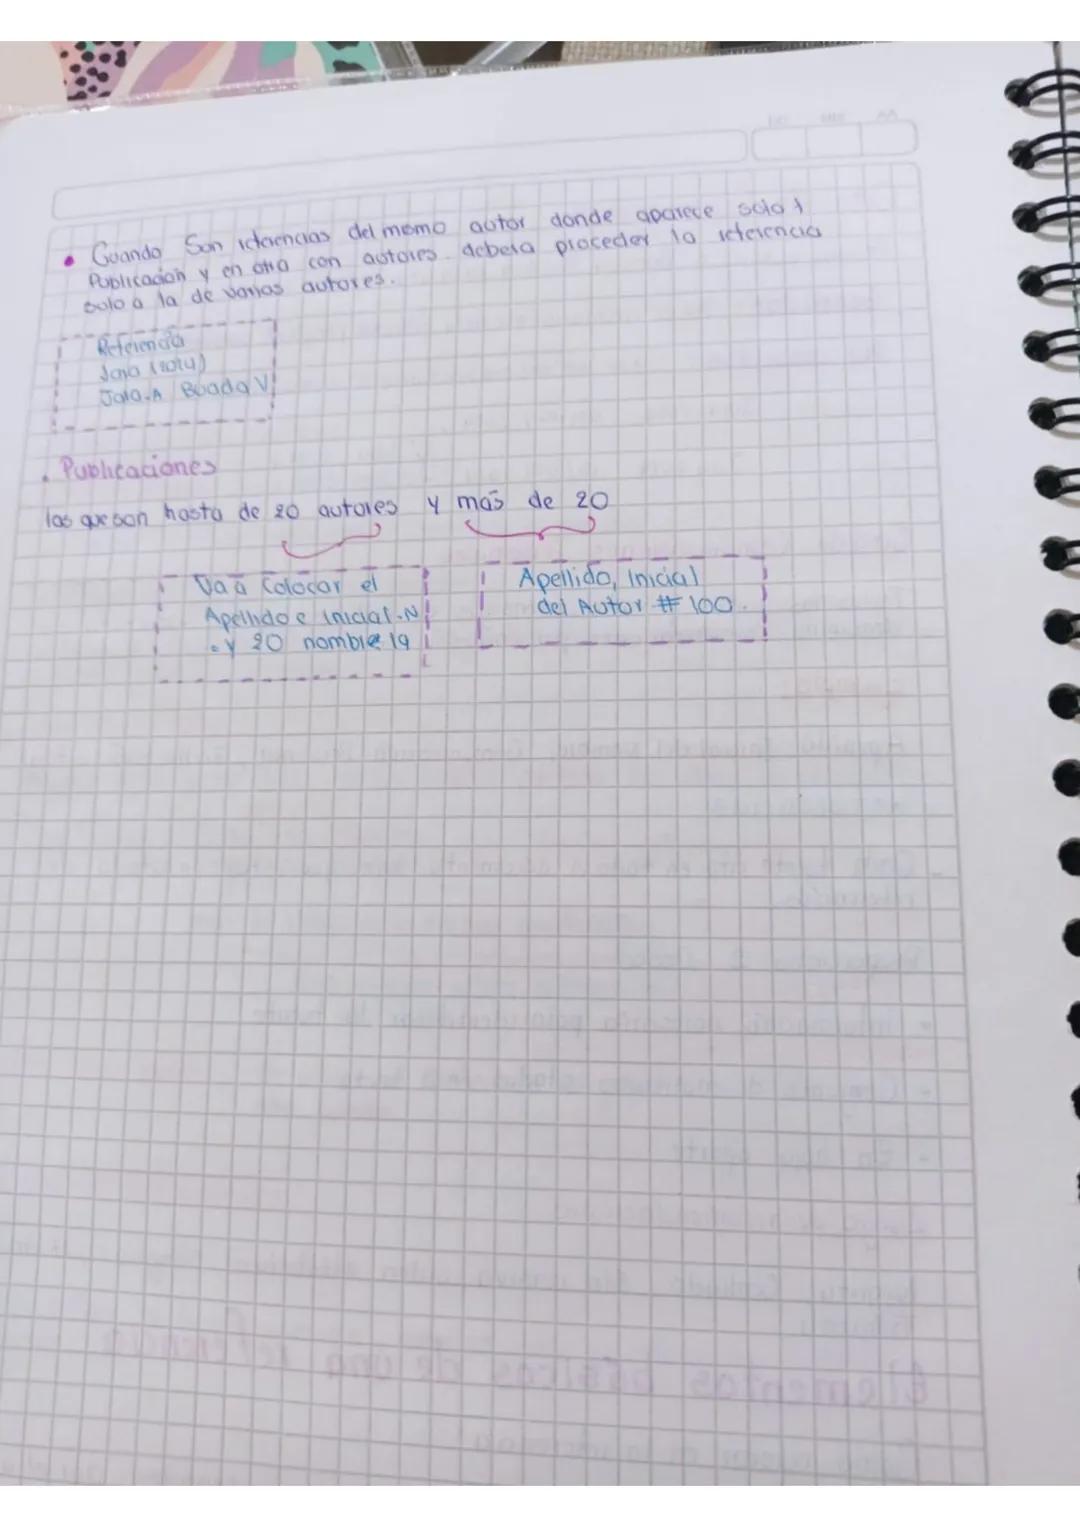 • Cuando Son referencias del mismo autor donde aparece solo 1
Publicación y en otra con autores debera proceder la referencia
solo a la de varios autores.
Referencia
Jara (2014)
Jara.A Buada V
• Publicaciones
las que son hasta de 20 autores y más de 20
Va a Colocar el
Apellido e Inicial.N
. y 20 nombre 19
Apellido, Inicial
del Autor # 100.